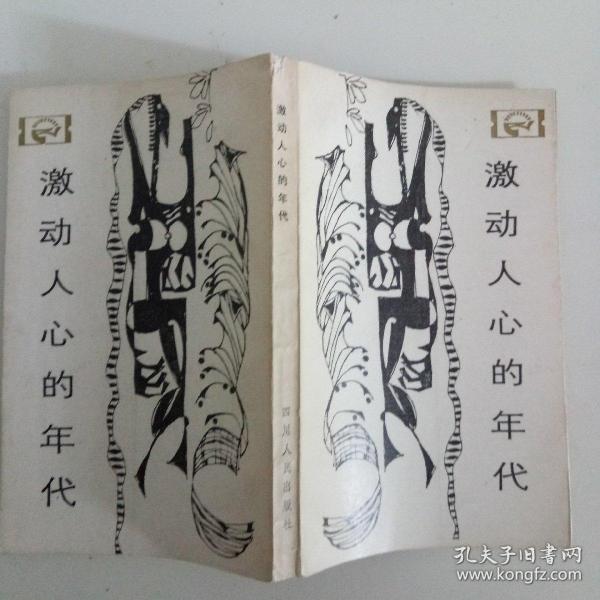 激动人心的年代
激动人心的年代
四川人民出版社
激动人心的年代
孔夫子旧书网
www.kongfz.com